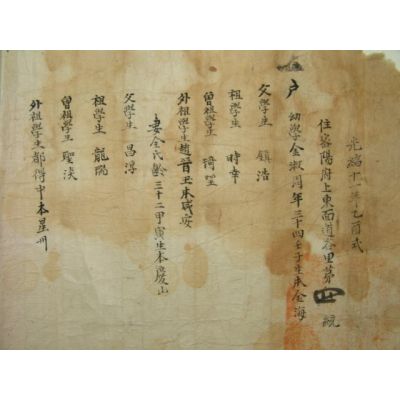 光緖十一年乙酉式
住密陽府上東面道谷里第四統
戶 幼學金淑周年三十四壬子生本金海
父學生 鎭浩
祖學生 時幸
曾祖學生 琦聖
外祖學生趙晉玉本咸安
妻全氏齡三十二甲寅生本慶山
父學生 昌淳
祖學生 龍
曾祖學生 聖淡
外祖學生都得中本星州